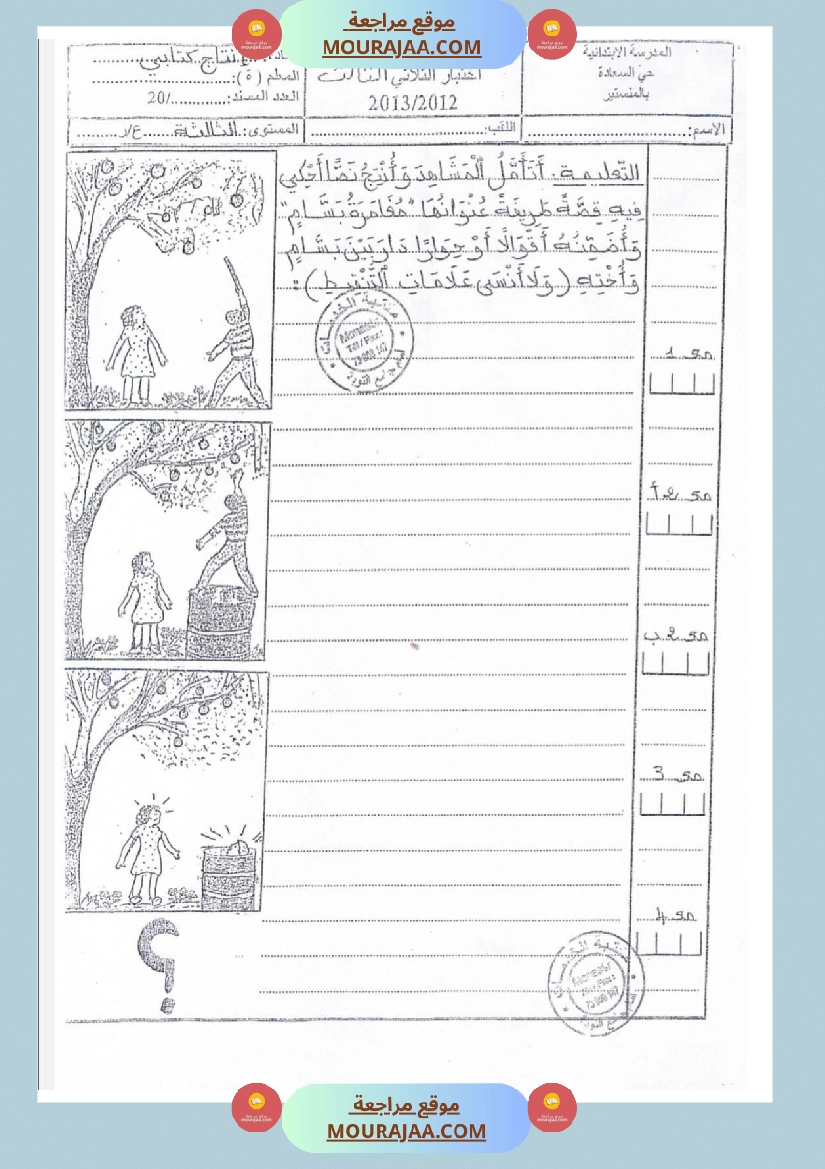 موقع مراجعة
MOURAJAA.COM
المدرسة الابتدائية
حيّ السعادة
بالمنستير
اختبار الثلاثي الثالث
2013/2012
إنتاج كتابي
المعلم (ة):
العدد المسند: /20
الاسم:
اللقب:
المستوى: الثالثة ع/ر
التّعليمة: أَتَأَمَّلُ الْمَشَاهِدَ وَأُنْتِجُ نَصًّا أَحْكِي
فِيهِ قِصَّةً طَرِيفَةً عُنْوَانُهَا "مُغَامَرَةُ بَسَّامٍ"
وَأُضَمِّنُهُ أَقْوَالًا أَوْ حِوَارًا دَارَ بَيْنَ بَسَّامٍ
وَأُخْتِهِ (وَلَا أَنْسَى عَلَامَاتِ التَّنْقِيطِ):
مع 1
مع 2 أ
مع 2 ب
مع 3
مع 4
؟
موقع مراجعة
MOURAJAA.COM